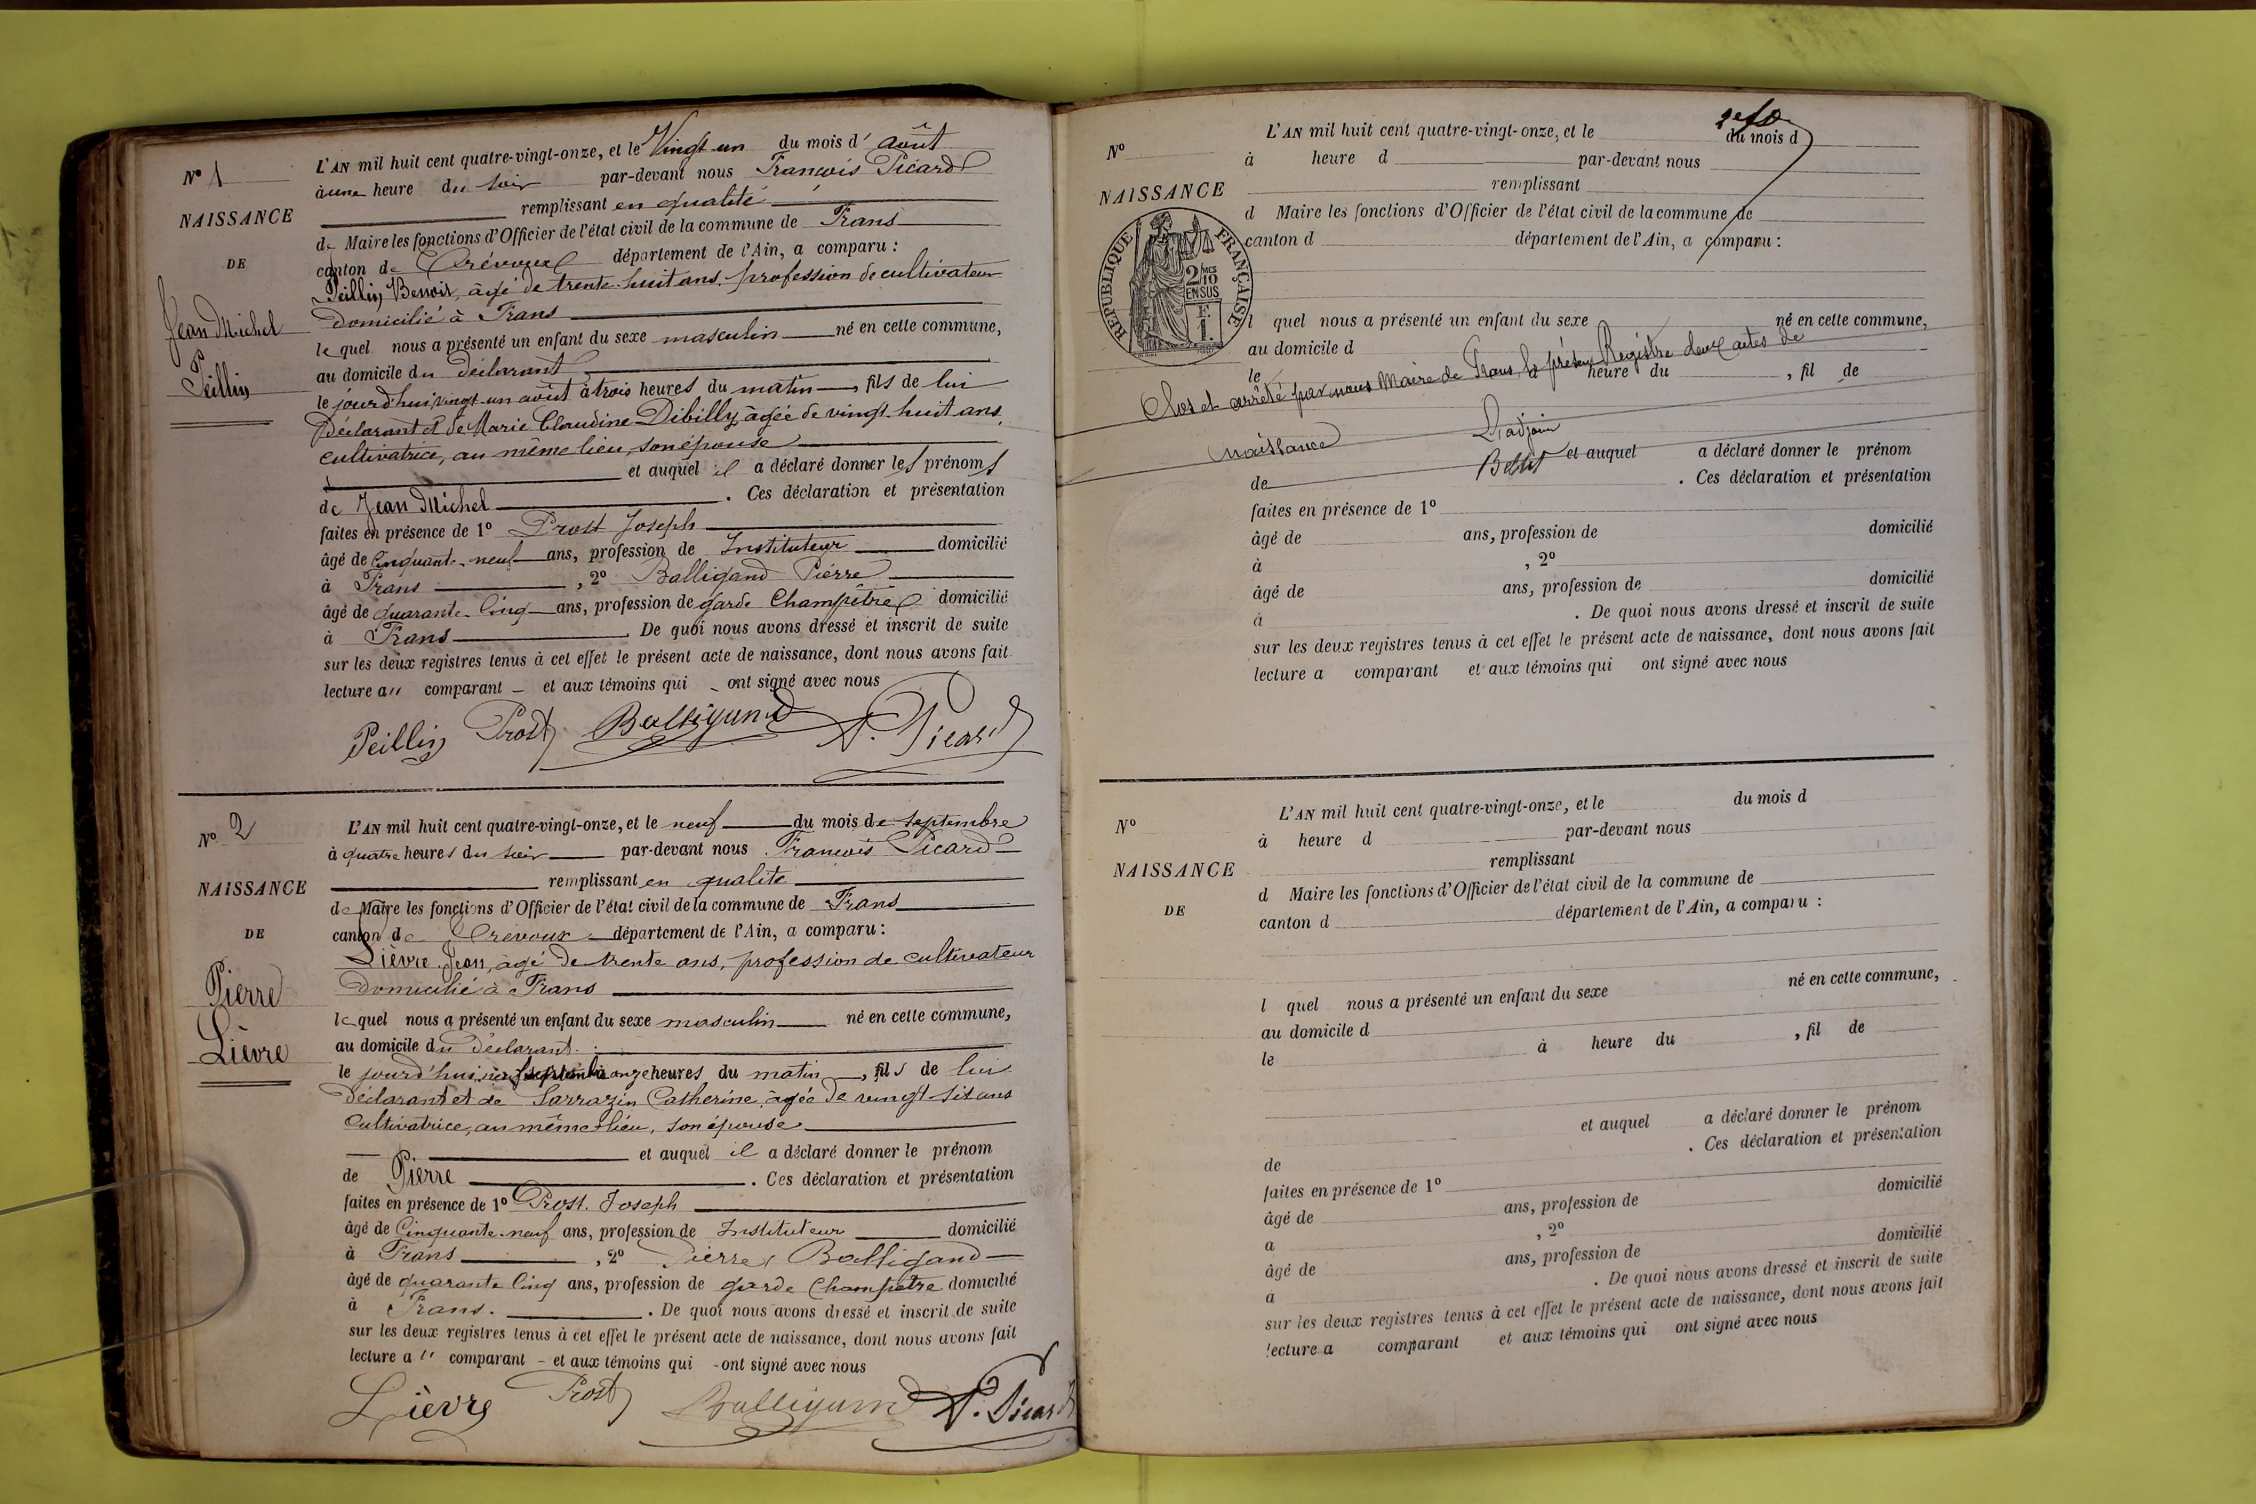 Nº 1
NAISSANCE
DE
Jean Michel
Peillin
L'AN mil huit cent quatre-vingt-onze, et le Vingt un du mois d' août
à une heure du soir par-devant nous François Picard
remplissant en qualité
de Maire les fonctions d'Officier de l'état civil de la commune de Frans
canton de Trévoux département de l'Ain, a comparu :
Peillin Benoit, âgé de trente-huit ans, profession de cultivateur
domicilié à Frans
le quel nous a présenté un enfant du sexe masculin né en cette commune,
au domicile du déclarant
le jourd'hui, vingt-un août à trois heures du matin, fils de lui
Déclarant et de Marie Claudine Dibilly, âgée de vingt huit ans,
cultivatrice, au même lieu, son épouse
et auquel il a déclaré donner les prénoms
de Jean Michel. Ces déclaration et présentation
faites en présence de 1º Prost Joseph
âgé de Cinquante-neuf ans, profession de Instituteur domicilié
à Frans, 2º Balligand Pierre
âgé de quarante-Cinq ans, profession de garde Champêtre domicilié
à Frans. De quoi nous avons dressé et inscrit de suite
sur les deux registres tenus à cet effet le présent acte de naissance, dont nous avons fait
lecture au comparant – et aux témoins qui – ont signé avec nous
Peillin Prost Balligand F. Picard
Nº 2
NAISSANCE
DE
Pierre
Lièvre
L'AN mil huit cent quatre-vingt-onze, et le neuf du mois de septembre
à quatre heures du soir par-devant nous François Picard
remplissant en qualité
de Maire les fonctions d'Officier de l'état civil de la commune de Frans
canton de Trévoux département de l'Ain, a comparu :
Lièvre Jean, âgé de trente ans, profession de cultivateur
domicilié à Frans
le quel nous a présenté un enfant du sexe masculin né en cette commune,
au domicile du déclarant
le jourd'hui, septembre à onze heures du matin, fils de lui
Déclarant et de Sarrazin Catherine, agée de vingt-six ans
Cultivatrice, au même lieu, son épouse
et auquel il a déclaré donner le prénom
de Pierre. Ces déclaration et présentation
faites en présence de 1º Prost Joseph
âgé de Cinquante-neuf ans, profession de Instituteur domicilié
à Frans, 2º Pierre Balligand
âgé de quarante Cinq ans, profession de garde Champêtre domicilié
à Frans. De quoi nous avons dressé et inscrit de suite
sur les deux registres tenus à cet effet le présent acte de naissance, dont nous avons fait
lecture au comparant – et aux témoins qui – ont signé avec nous
Lièvre Prost Balligand F. Picard
2e fo
Nº
NAISSANCE
RÉPUBLIQUE FRANÇAISE
2/10 MES
EN SUS
F.
1.
L'AN mil huit cent quatre-vingt-onze, et le du mois d
à heure d par-devant nous
remplissant
d Maire les fonctions d'Officier de l'état civil de la commune de
canton d département de l'Ain, a comparu :
l quel nous a présenté un enfant du sexe né en cette commune,
au domicile d
le à heure du , fil de
Clos et arrêté par nous Maire de Frans, le présent Registre deux actes de
naissance
L'adjoint
et auquel a déclaré donner le prénom
de . Ces déclaration et présentation
faites en présence de 1º
âgé de ans, profession de domicilié
à , 2º
âgé de ans, profession de domicilié
à . De quoi nous avons dressé et inscrit de suite
sur les deux registres tenus à cet effet le présent acte de naissance, dont nous avons fait
lecture a comparant et aux témoins qui ont signé avec nous
Nº
NAISSANCE
DE
L'AN mil huit cent quatre-vingt-onze, et le du mois d
à heure d par-devant nous
remplissant
d Maire les fonctions d'Officier de l'état civil de la commune de
canton d département de l'Ain, a comparu :
l quel nous a présenté un enfant du sexe né en cette commune,
au domicile d
le à heure du , fil de
et auquel a déclaré donner le prénom
de . Ces déclaration et présentation
faites en présence de 1º
âgé de ans, profession de domicilié
a , 2º
âgé de ans, profession de domicilié
a . De quoi nous avons dressé et inscrit de suite
sur les deux registres tenus à cet effet le présent acte de naissance, dont nous avons fait
lecture a comparant et aux témoins qui ont signé avec nous